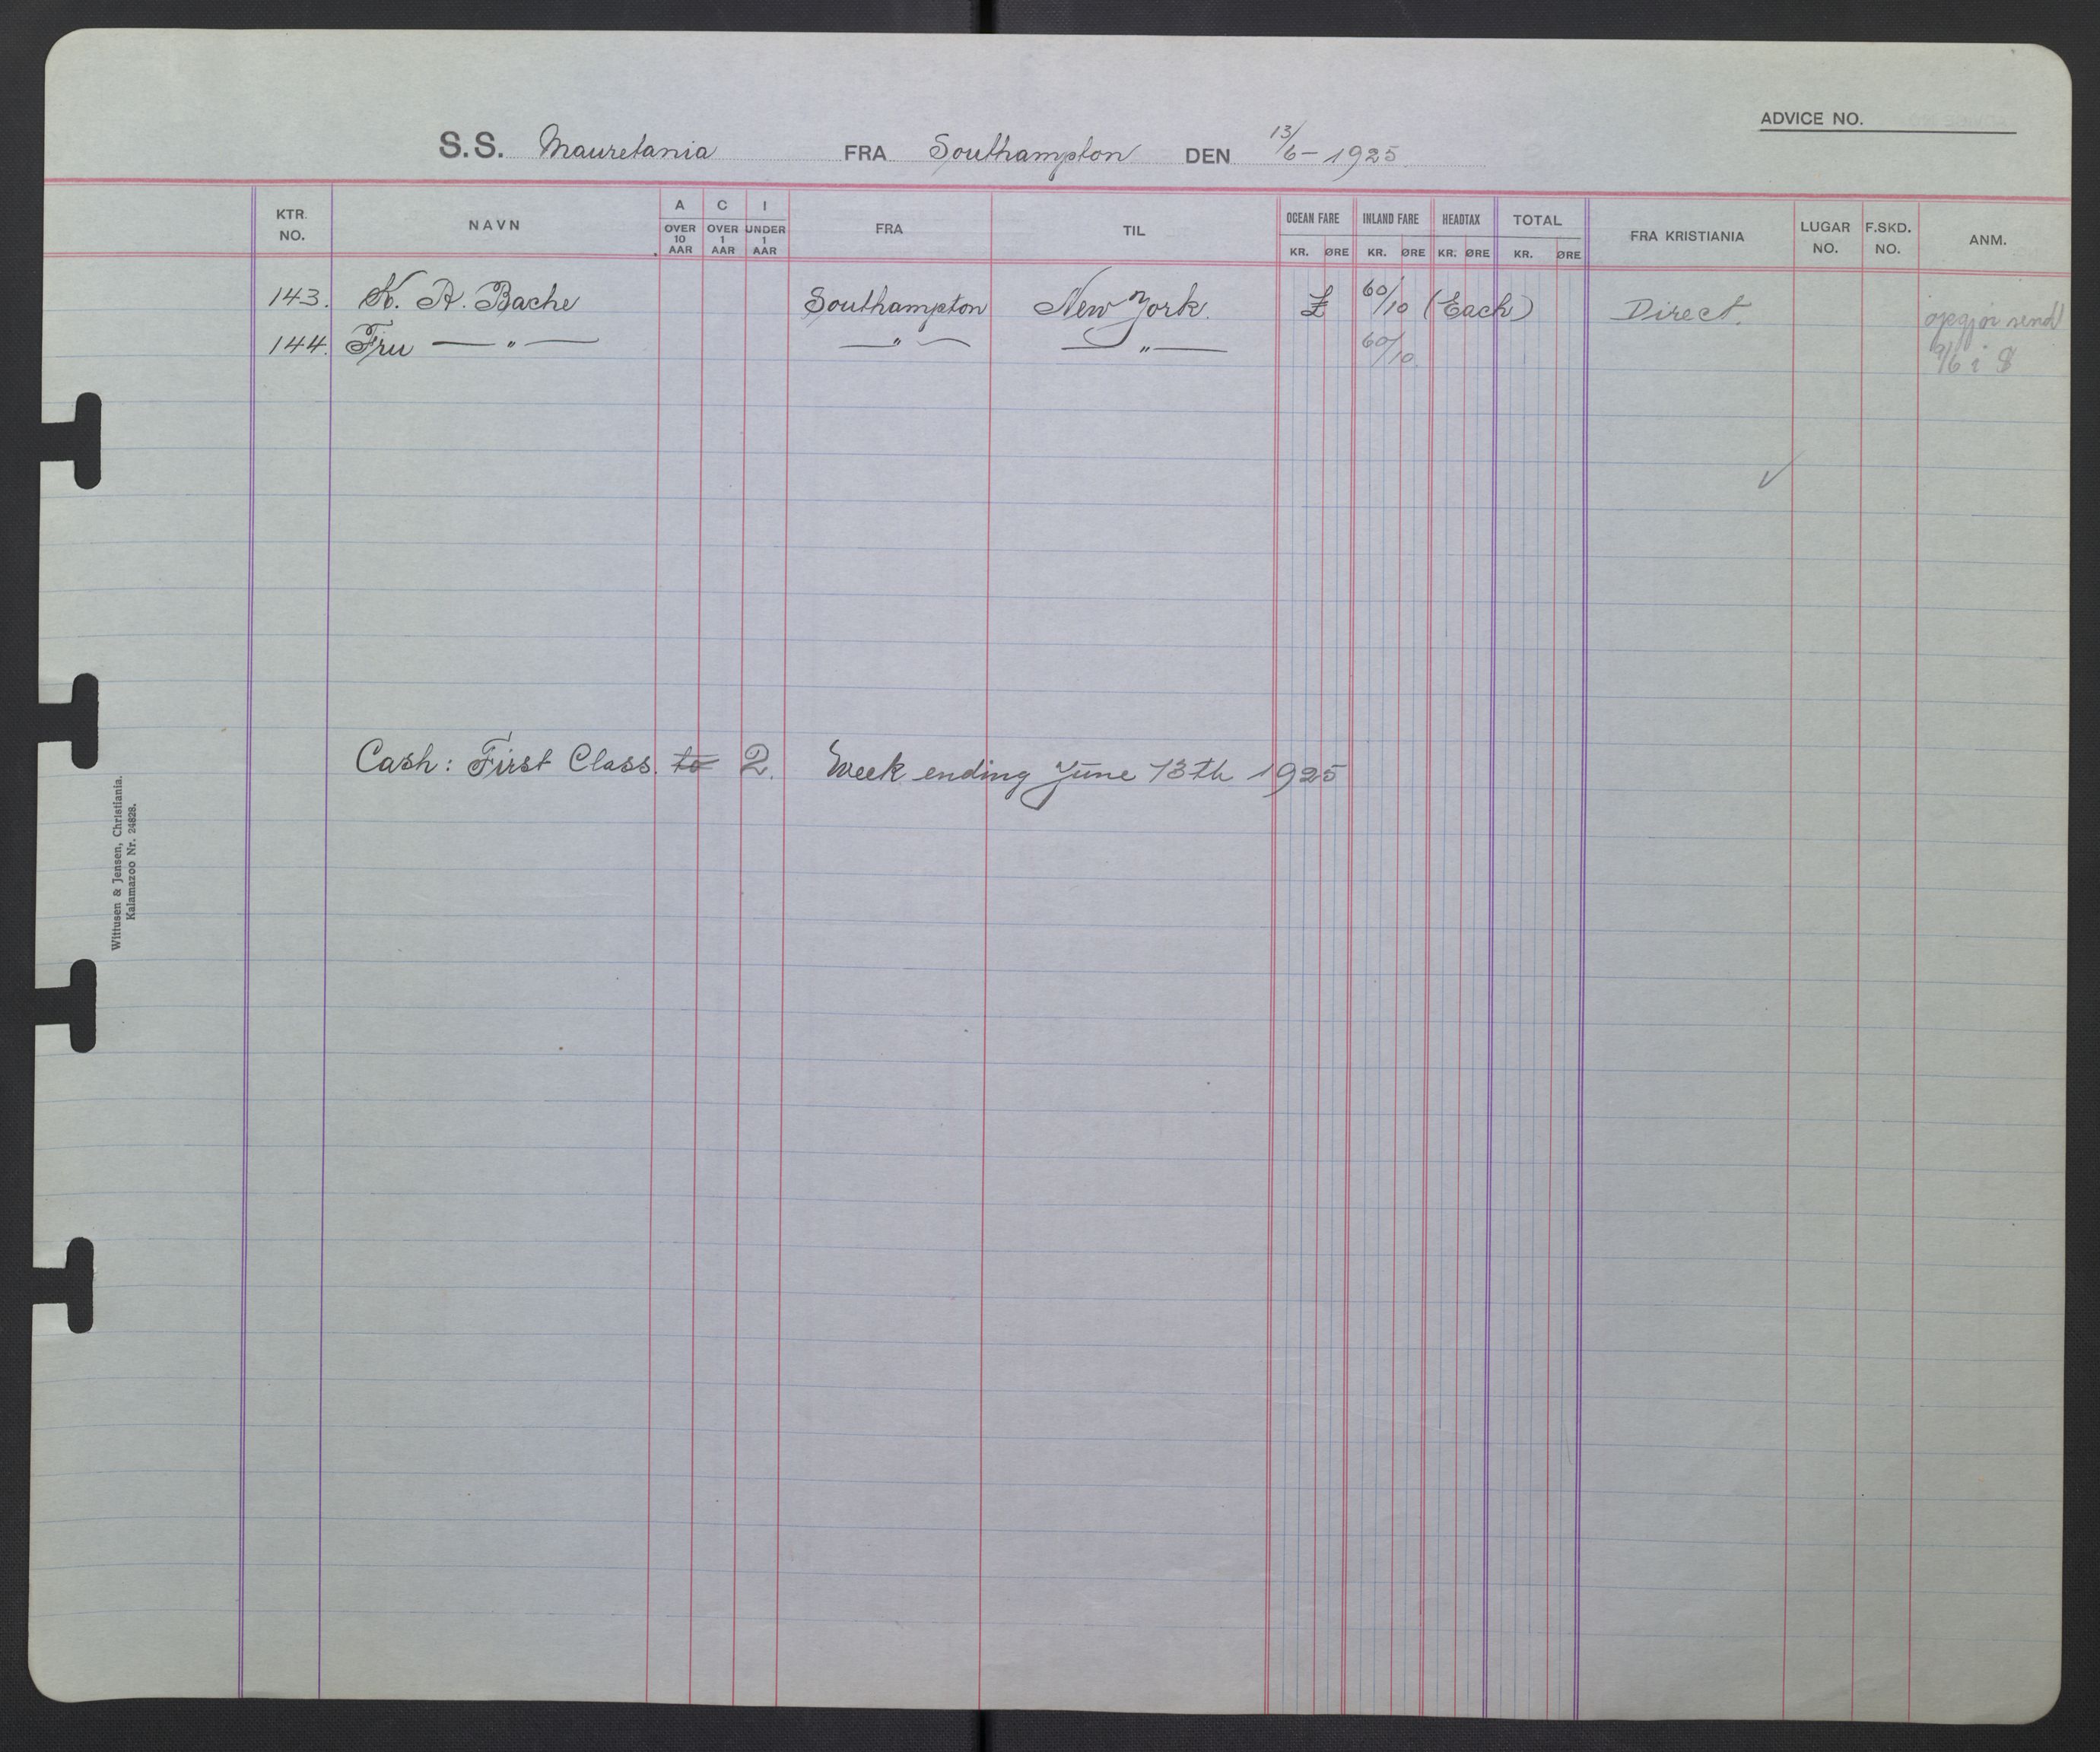 ADVICE NO.
S.S. Mauretania FRA Southampton DEN 13/6 - 1925
KTR. NO. NAVN A OVER 10 AAR C OVER 1 AAR I UNDER 1 AAR FRA TIL OCEAN FARE KR. ØRE INLAND FARE KR. ØRE HEADTAX KR. ØRE TOTAL KR. ØRE FRA KRISTIANIA LUGAR NO. F.SKD. NO. ANM.
143. K. A. Bache Southampton New York. £ 60/10 (Each) Direct. opgjør send
144. Fru — " — — " — — " — 60/10. 9/6 i $
Cash: First Class. to 2. Week ending June 13th 1925
Wittusen & Jensen, Christiania.
Kalamazoo Nr. 24828.